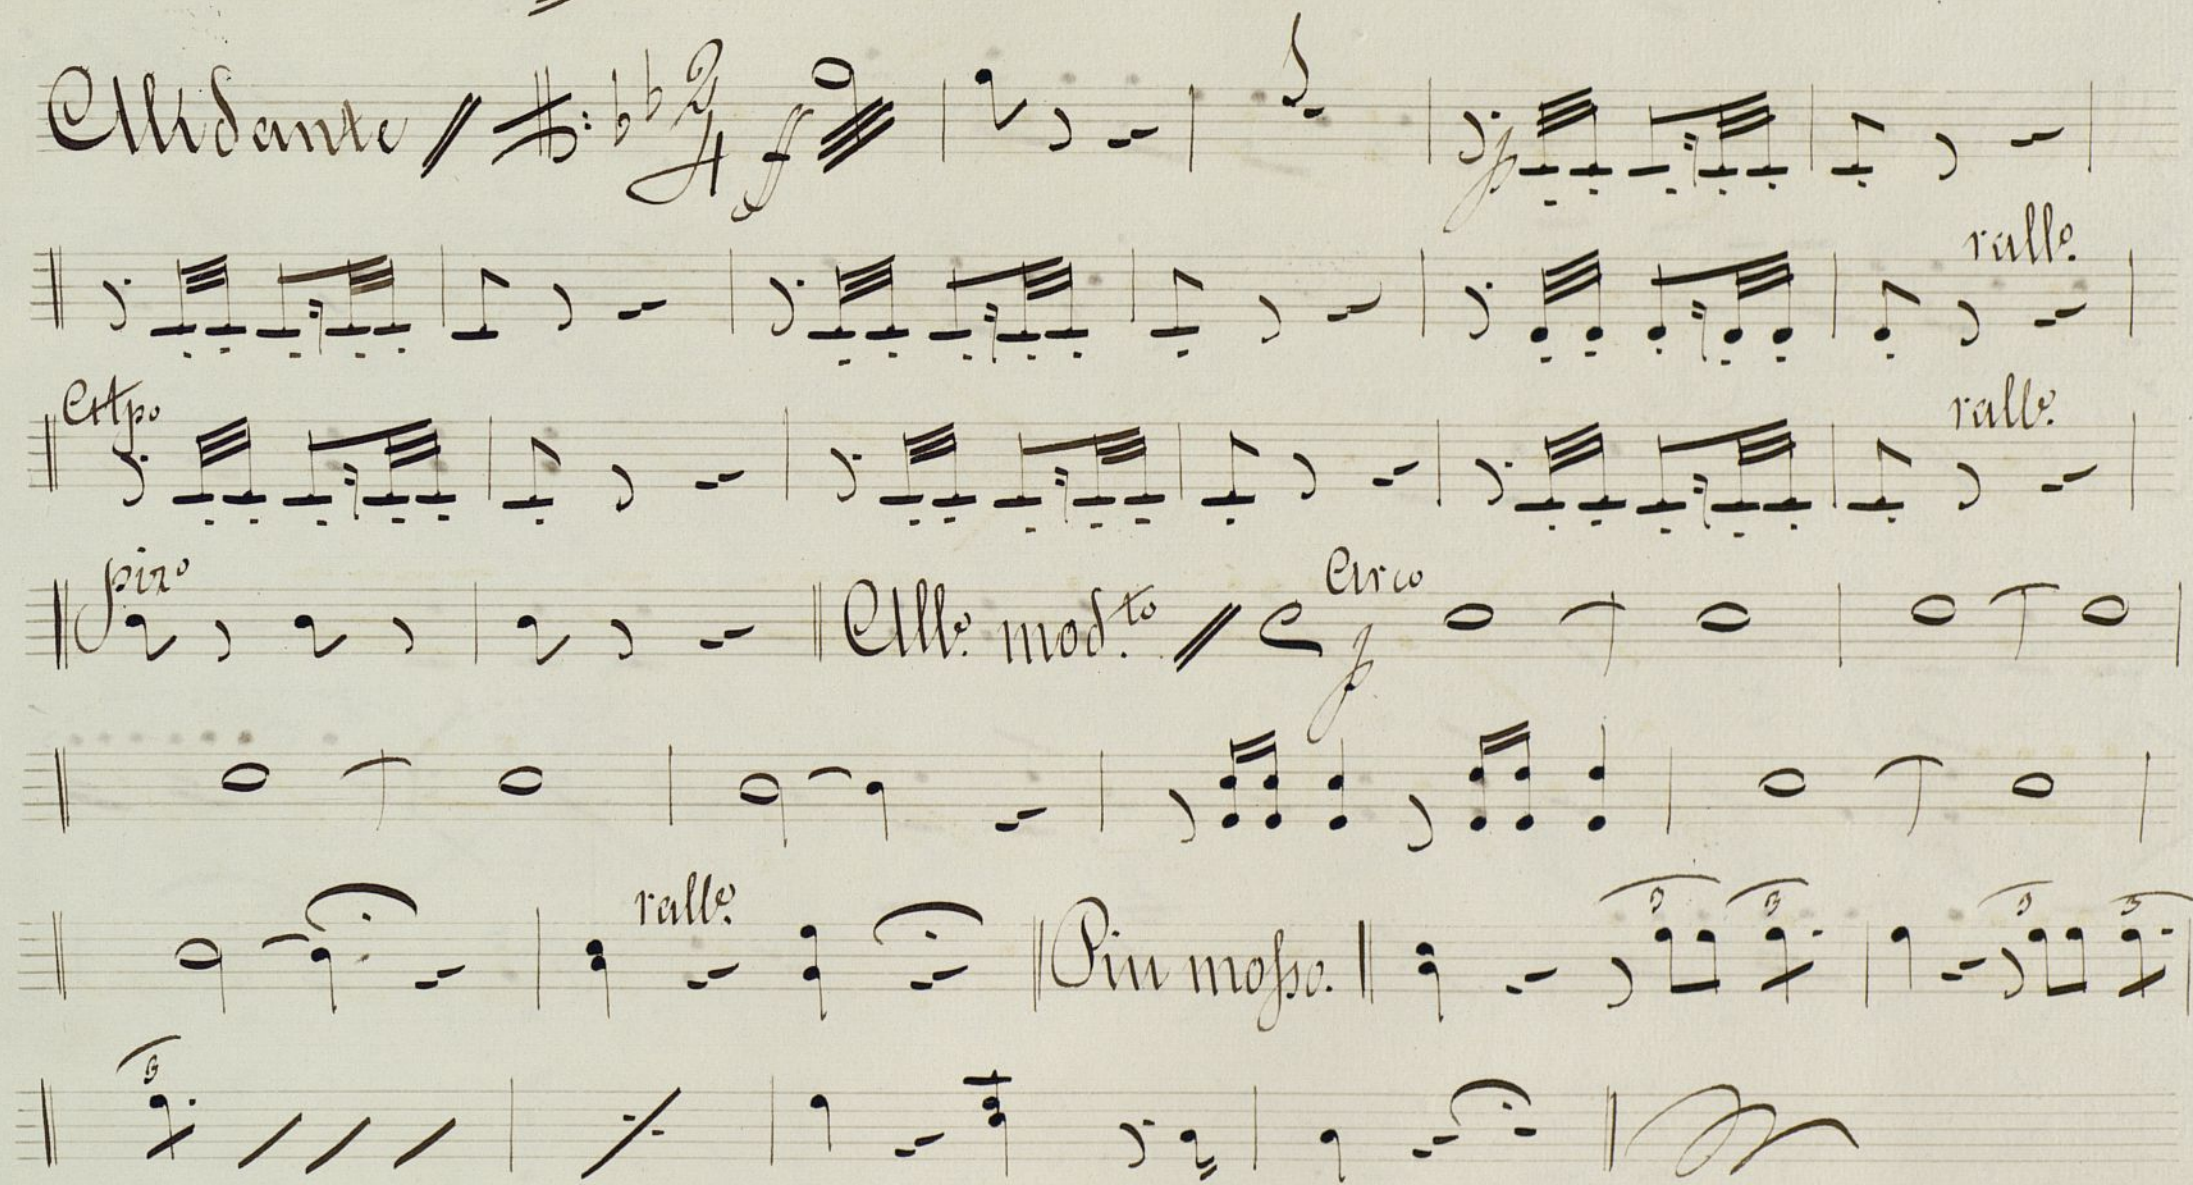 Andante 2/4 ff
p rallo.
Atpo rallo.
pizo Allo. mod.to Arco p
rallo. Piu mosso. 3 3 3 3
3